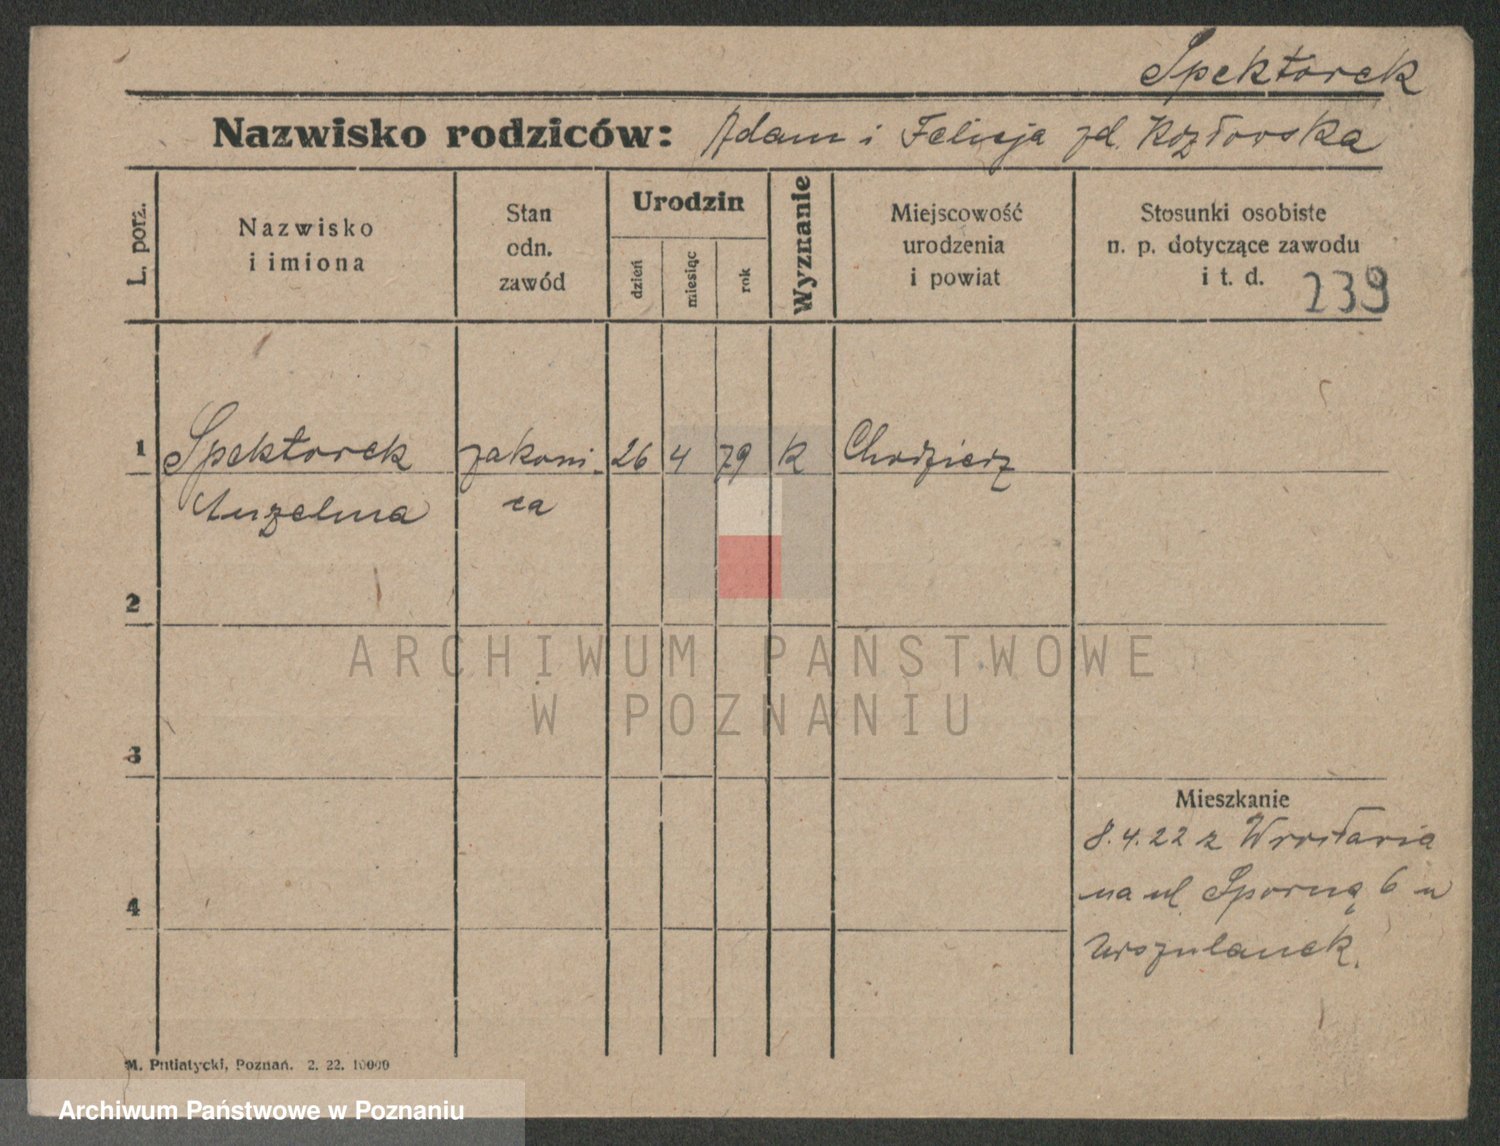 Spektorek
Nazwisko rodziców: Adam i Felicja zd. Kozłowska
L. porz.
Nazwisko
i imiona
Stan
odn.
zawód
Urodzin
dzień
miesiąc
rok
Wyznanie
Miejscowość
urodzenia
i powiat
Stosunki osobiste
n. p. dotyczące zawodu
i t. d.
239
1 Spektorek zakoni- 26 4 79 k Chodzież
Anzelma ca
2
3
4
Mieszkanie
8.4.22 z Wrocławia
na ul Sporną 6 u
Urszulanek.
M. Putiatycki, Poznań. 2. 22. 10000
ARCHIWUM PAŃSTWOWE
W POZNANIU
Archiwum Państwowe w Poznaniu